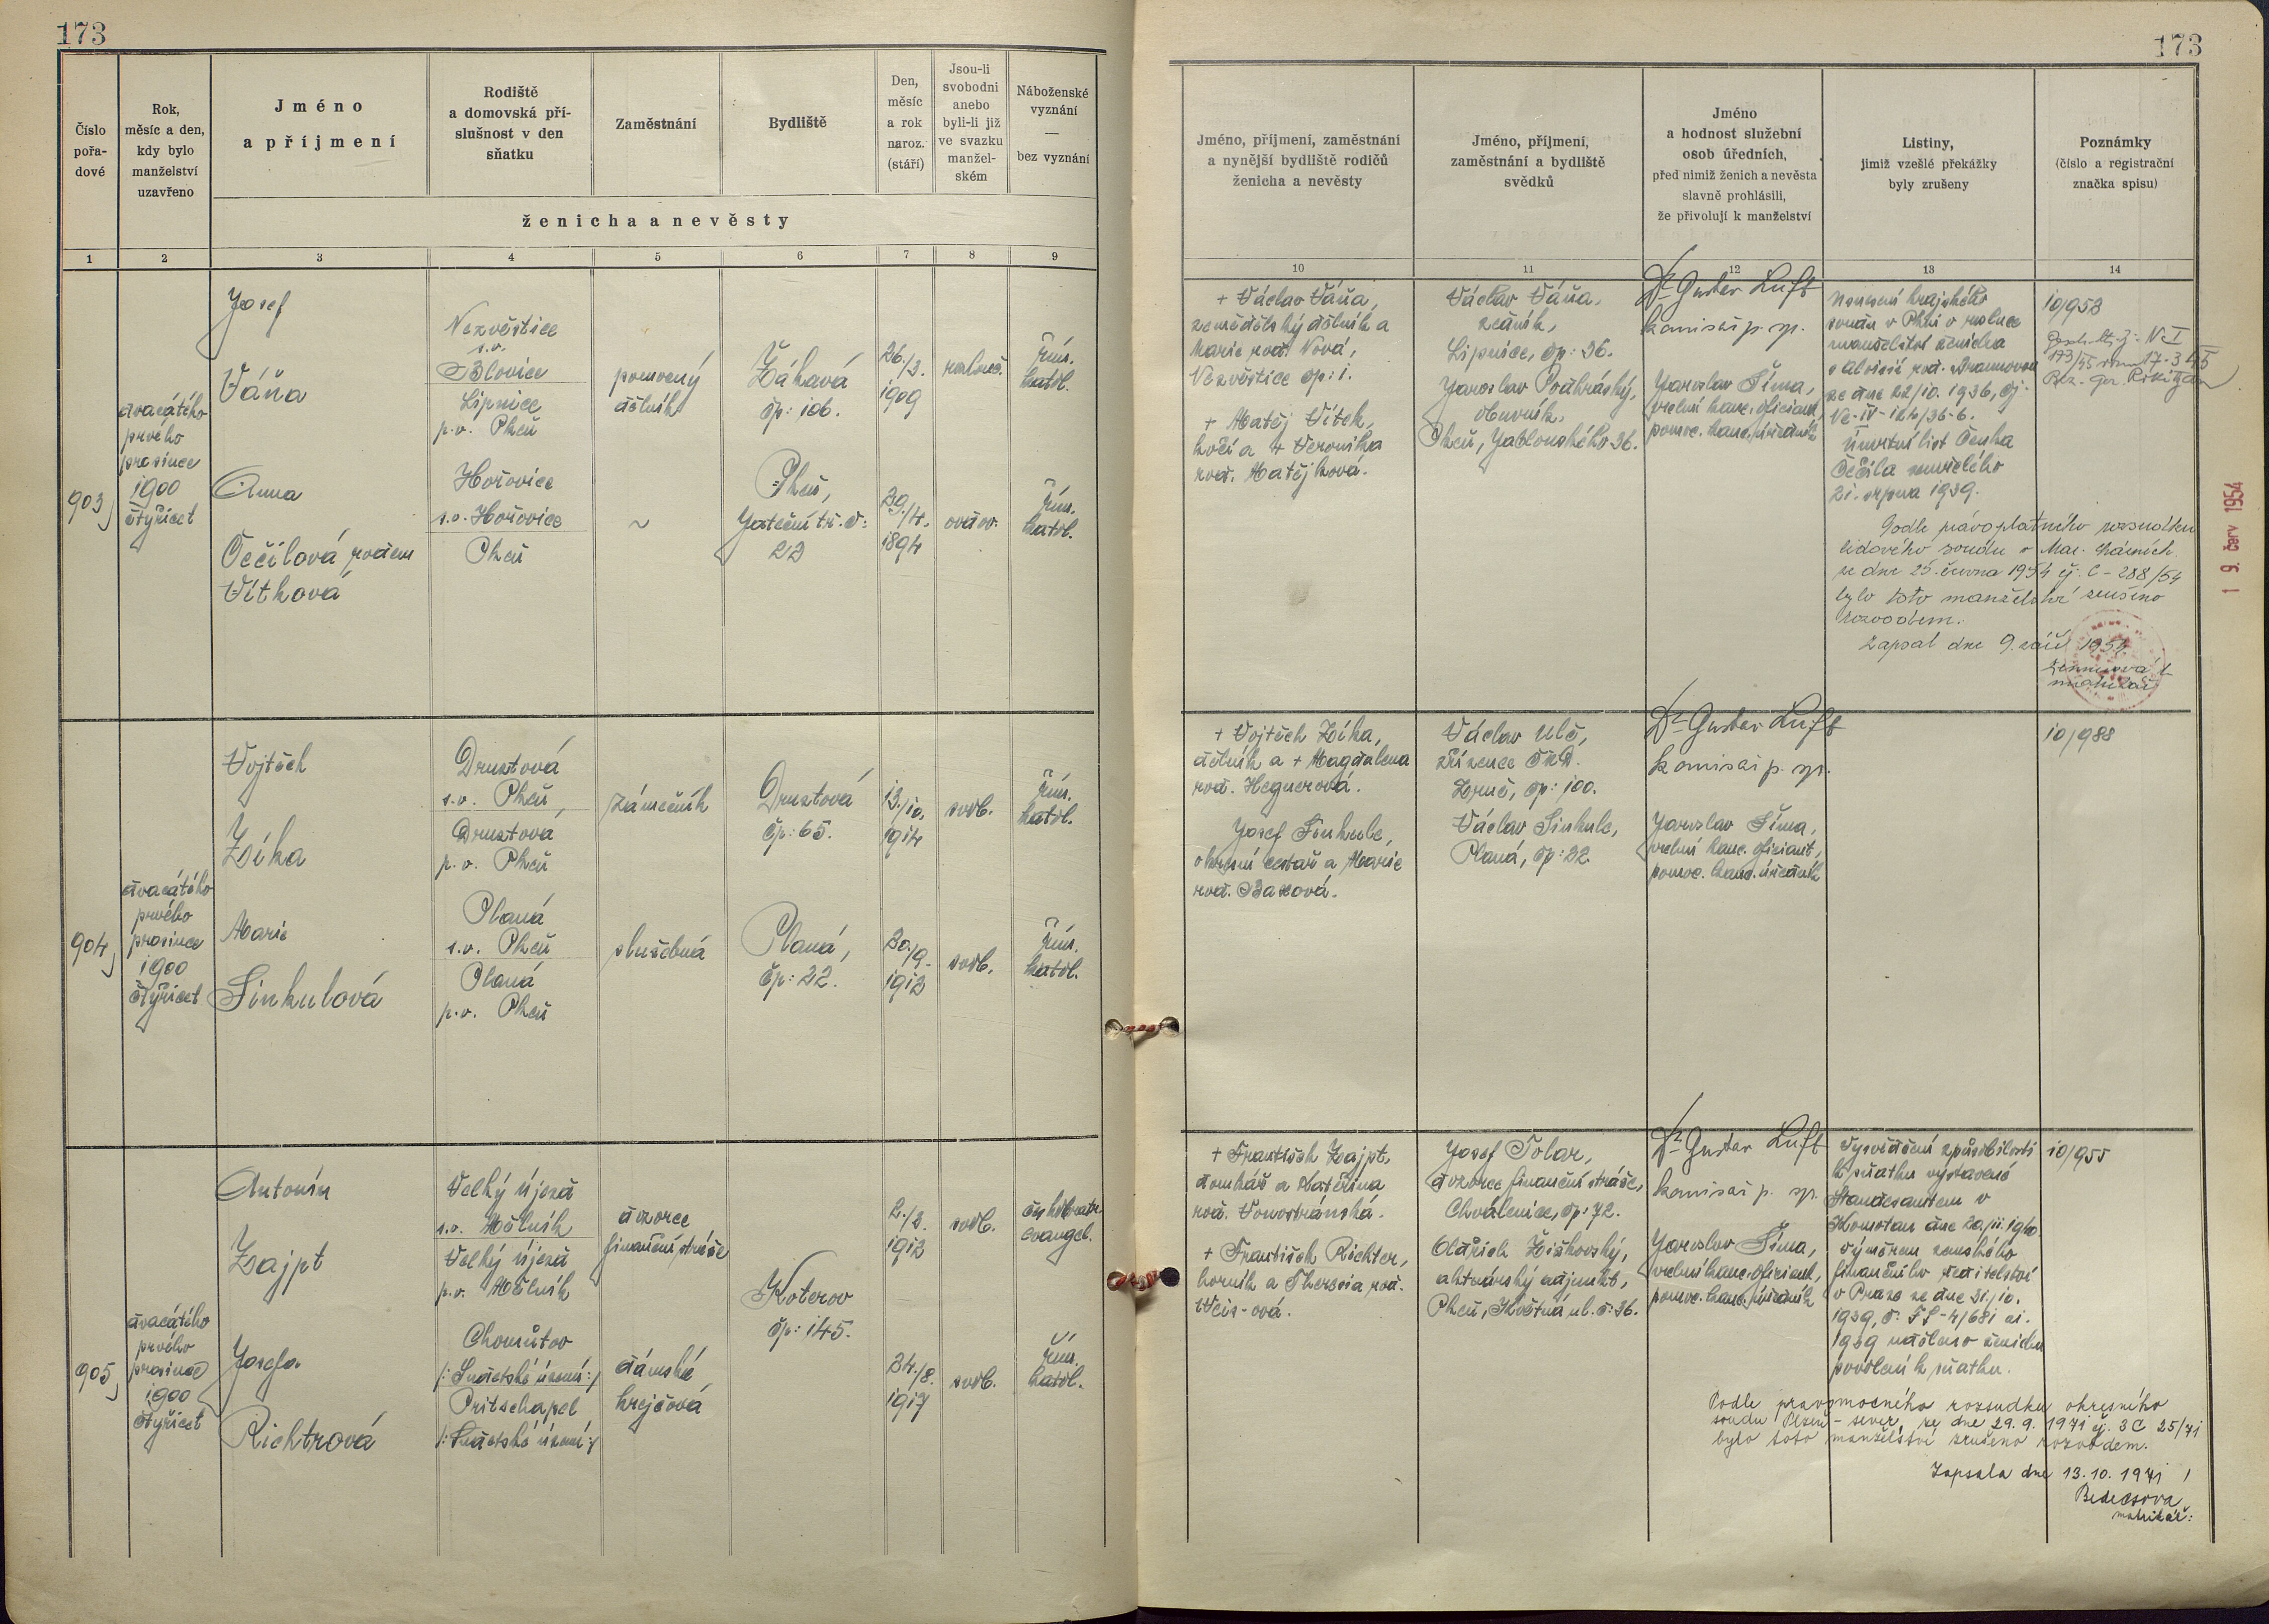 173
173
Číslo pořa-
dové
Rok,
měsíc a den,
kdy bylo
manželství
uzavřeno
Jméno
a příjmení
Rodiště
a domovská pří-
slušnost v den
sňatku
Zaměstnání
Bydliště
Den,
měsíc
a rok
naroz.
(stáří)
Jsou-li
svobodni
anebo
byli-li již
ve svazku
manžel-
ském
Náboženské
vyznání
—
bez vyznání
ženicha a nevěsty
Jméno, příjmení, zaměstnání
a nynější bydliště rodičů
ženicha a nevěsty
Jméno, příjmení,
zaměstnání a bydliště
svědků
Jméno
a hodnost služební
osob úředních,
před nimiž ženich a nevěsta
slavně prohlásili,
že přivolují k manželství
Listiny,
jimiž vzešlé překážky
byly zrušeny
Poznámky
(číslo a registrační
značka spisu)
1 2 3 4 5 6 7 8 9
10 11 12 13 14
903)
dvacátého
prvého
prosince
1900
čtyřicet
Josef
Váňa
Nezvěstice
s.o.
Blovice
Lipnice
p.o. Plzeň
pomocný
dělník
Žákavá
čp: 106.
26./3.
1909
rozluč.
řím.
katol.
Anna
Čečilová rodem
Vítková
Hořovice
s.o. Hořovice
Plzeň
~
Plzeň,
Jateční tř. č:
23
29./4.
1894
ovdov.
řím.
katol.
+ Václav Váňa,
zemědělský dělník a
Marie roz. Nová,
Nezvěstice čp: 1.
+ Matěj Vítek,
kočí a + Veronika
roz. Matějková.
Václav Váňa,
zedník,
Lipnice, čp: 36.
Jaroslav Podhráský,
obuvník,
Plzeň, Jablonského 36.
Dr Gustav Luft
komisař p. sp.
Jaroslav Šíma,
vrchní kanc. oficiant,
pomoc. kanc. úředník
Usnesení krajského
soudu v Plzni o rozluce
manželství ženicha
s Aloisií roz.
ze dne 22/10. 1936, čj:
Úmrtní list Čeňka
Čečila zemřelého
21. srpna 1939.
10/953
Podle právoplatného rozsudku
lidového soudu v Mar. Lázních
ze dne 25. června 1954 čj: C-288/54
bylo toto manželství zrušeno
rozvodem.
Zapsal dne 9. září 1954.
1 9. červ 1954
904)
dvacátého
prvého
prosince
1900
čtyřicet
Vojtěch
Zíka
Druztová
s.o. Plzeň,
Druztová
p.o. Plzeň
zámečník
Druztová
čp: 65.
13./10.
1914
svob.
řím.
katol.
Marie
Sinkulová
Planá
s.o. Plzeň
Planá
p.o. Plzeň
služebná
Planá,
čp: 22.
30./9.
1913
svob.
řím.
katol.
+ Vojtěch Zíka,
dělník a + Magdalena
roz. Hegnerová.
Josef Sinkule,
okresní cestář a Marie
roz. Baxová.
Václav Ulč,
zřízenec ČMD.
Zruč, čp: 100.
Václav Sinkule,
Planá, čp: 22.
Dr Gustav Luft
komisař p. sp.
Jaroslav Šíma,
vrchní kanc. oficiant,
pomoc. kanc. úředník
10/988
905)
dvacátého
prvého
prosince
1900
čtyřicet
Antonín
Zajpt
Velký újezd
s.o. Mělník
Velký újezd
p.o. Mělník
dozorce
finanční stráže
Koterov
čp: 145.
2./2.
1913
svob.
českobratr.
evangel.
Josefa
Richtrová
Chomútov
/: Sudetské území :/
Pritschapel
/: Sudetské území :/
dámská
krejčová
24./8.
1917
svob.
řím.
katol.
+ František Zajpt,
domkář a Kateřina
roz. Vonostránská.
+ František Richter,
horník a Theresia roz.
Weis-ová.
Josef Tolar,
dozorce finanční stráže,
Chválenice, čp: 72.
Oldřich Žižkovský,
aktuárský adjunkt,
Plzeň, Květná ul. č: 36.
Dr Gustav Luft
komisař p. sp.
Jaroslav Šíma,
vrchní kanc. oficiant,
pomoc. kanc. úředník
Vysvědčení způsobilosti
k sňatku vystavené
Standesamtem v
Komotau dne 20./11. 1940.
Výměrem zemského
finančního ředitelství
v Praze ze dne 31./10.
1939,
1939 uděleno ženichu
povolení k sňatku.
10/955
Podle pravomocného rozsudku okresního
soudu Plzeň-sever, ze dne 29. 9. 1971 čj. 3C 25/71
bylo toto manželství zrušeno rozvodem.
Zapsala dne 13. 10. 1971
matrikář: